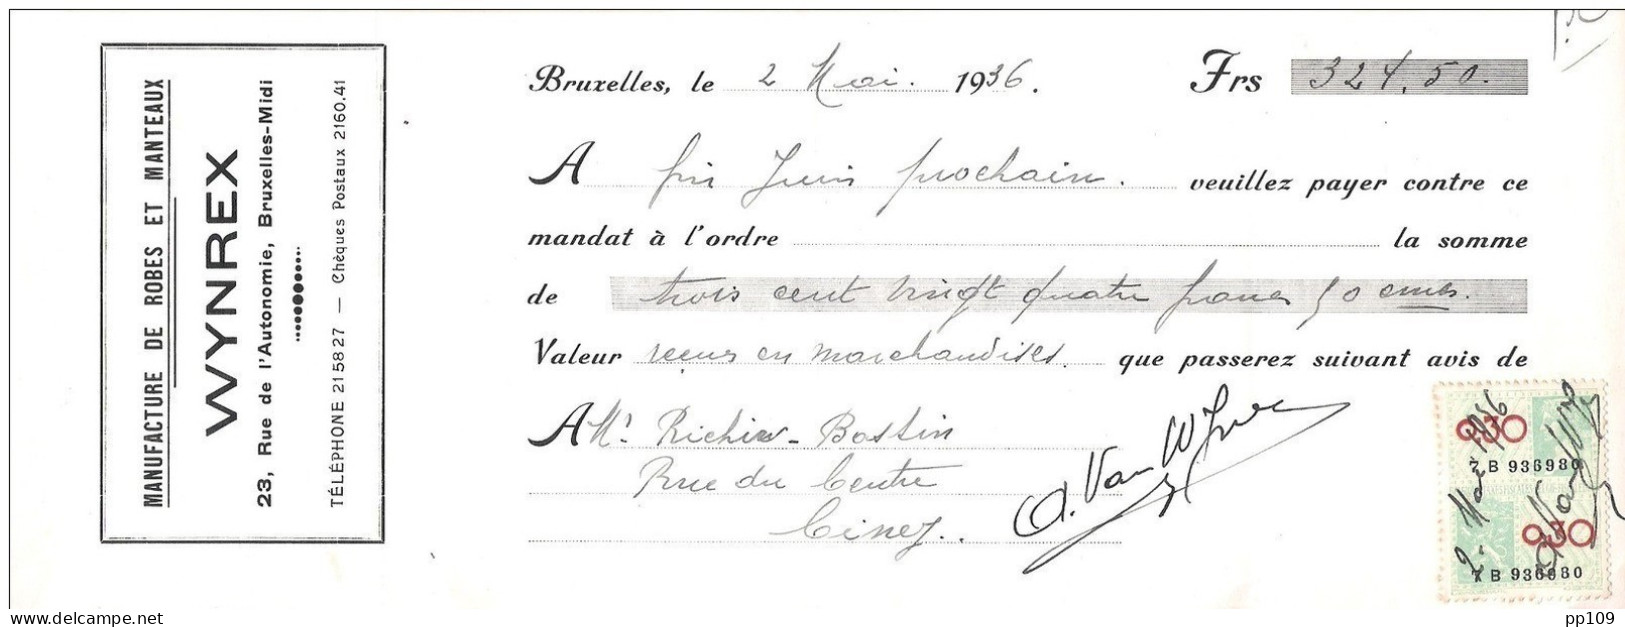 MANUFACTURE DE ROBES ET MANTEAUX
WYNREX
23, Rue de l'Autonomie, Bruxelles-Midi
TÉLÉPHONE 215827 — Chèques Postaux 2160.41
Bruxelles, le 2 Mai. 1936. Frs 324,50.
A fin Juin prochain. veuillez payer contre ce
mandat à l'ordre la somme
de trois cent vingt quatre francs 50 cmes.
Valeur reçue en marchandises. que passerez suivant avis de
A Mr Richir-Bastin
Rue du Centre
Ciney..
A. Van
030
7 B 936980
030
7 B 936980
2 - Mai 1936
pp109